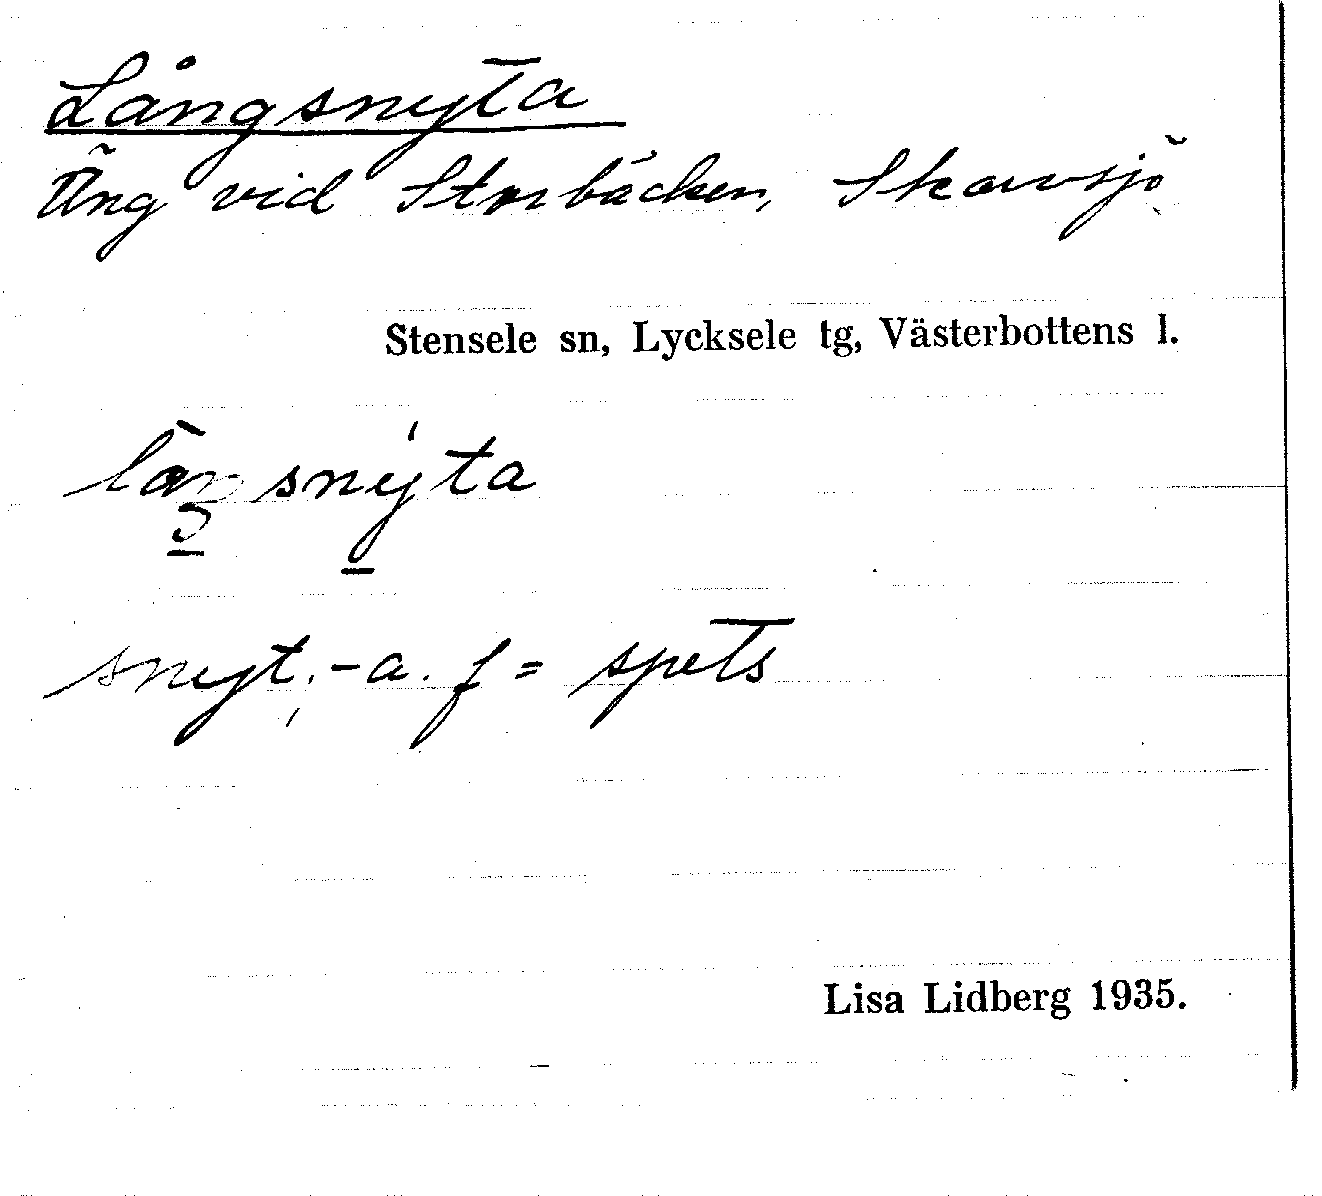 Långsnyta
Äng vid Storbäcken, Skavsjö
Stensele sn, Lycksele tg, Västerbottens l.
långsnyta
snyt, -a. f = spets
Lisa Lidberg 1935.